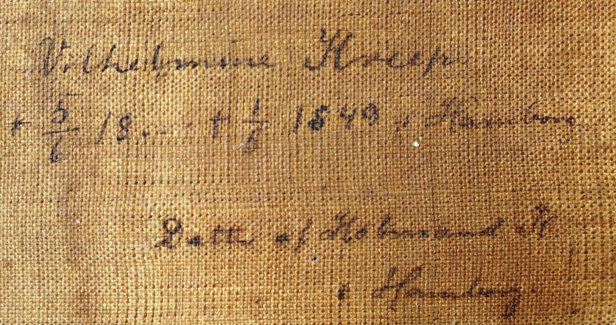 Vilhelmine Kreep
* 5/6 18.... † 1/6 1849 i Hamborg
Datter af Købmand K
i Hamborg.